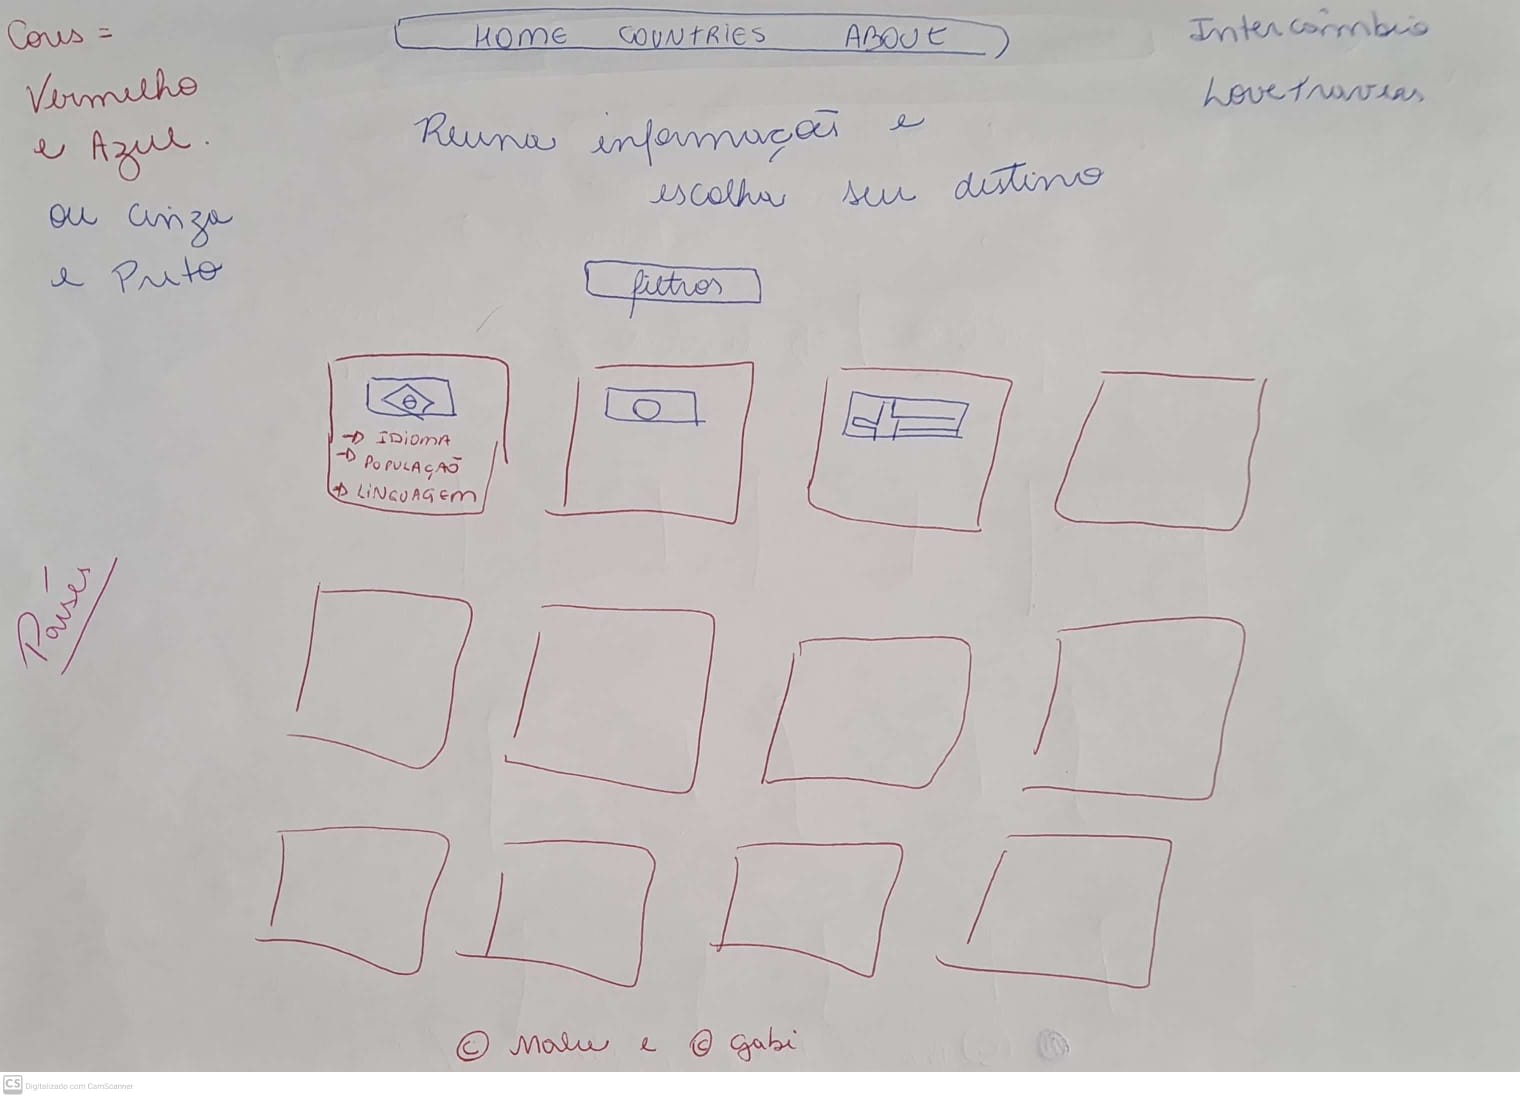 Cores =
Vermelho
e Azul.
ou cinza
e Preto
HOME COUNTRIES ABOUT
Intercâmbio
Lovetraveas
Reuna informação e
escolha seu destino
filtros
→ IDIOMA
→ POPULAÇÃO
→ LINGUAGEM
Países
© Malu e © gabi
CS Digitalizado com CamScanner